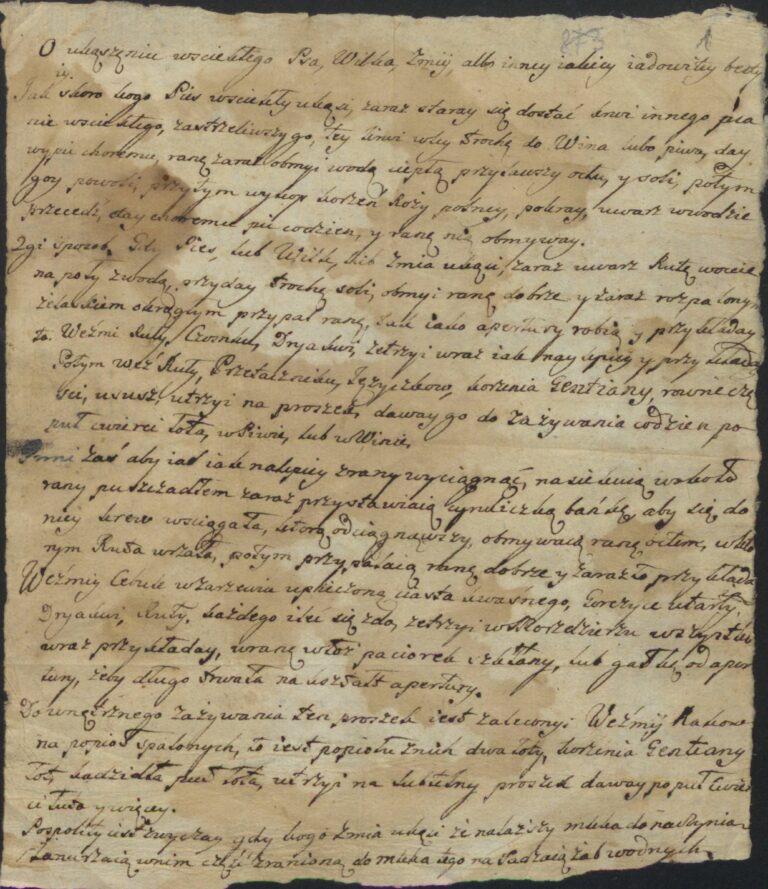 873 1
O ukąszeniu wsciekłego Psa, Wilka, Zmij, albo inney iakiey iadowitey besty
ij.
Jak skoro kogo Pies wsciekły ukąsi, zaraz staray się dostać krwi innego psa
nie wsciekłego, zastrzeliwszy go, tey krwi wley trochę do Wina lubo piwa, day
wypić choremu, ranę zaraz obmyi wodą ciepłą przylawszy octu, y soli, potym
goy powoli, przytym wykop korzeń Roży polney, pokray, uwarz w wodzie
przecedź, day choremu pić codzien, y ranę nią obmyway.
2gi sposob. Gdy Pies, lub Wilk, lub Zmia ukąsi, zaraz uwarz Rutę w occie
na poły z wodą, przyday trochę soli, obmyi ranę dobrze y zaraz rozpalonym
żelazkiem okrągłym przypal ranę, tak iako apertury robią y przykładay
to. Weźmi Ruty, Czosnku, Dryakwi, zetrzyi wraz iak naylepiey y przykładay
Potym weź Ruty, Przetacznika, Języczkow, korzenia Gentiany, rowne czę
ści, ususz, utrzyi na proszek, daway go do zażywania codzien po
puł cwierci łota, w Piwie, lub w Winie.
Inni zaś aby iad iak nalepiey z rany wyciągnąć, nasiekaią wokoło
rany puszczadłem zaraz przystawiaią cyruliczką bańkę, aby się do
niey krew wsciągała, ktorą odciągnąwszy, obmywaią ranę octem, w kto
rym Ruta wrzała, potym przypalaią ranę dobrze y zaraz to przykłada
Weźmiy Cebule w zarzewiu upieczoną, ciasta kwaśnego, Gorczyce utartey,
Dryakwi, Ruty, każdego ileć się zda, zetrzyi w moździerzu wszystko
wraz przykładay, w ranę włoż paciorek szklany, lub gałkę od aper
tury, żeby długo trwała na kształt apertury.
Do wnętrznego zażywania ten proszek iest zalecony: Weźmij Rakow
na popioł spalonych, to iest popiołu z nich dwa łoty, korzenia Gentiany
łot, kadzidła puł łota, utrzyi na subtelny proszek daway po puł cwier
ci łuta y więcey.
Pospolity iest zwyczay gdy kogo Zmia ukąsi że nalawszy mleka do naczynia
zanurzaią w nim część zranioną do mleka tego nasadzaią żab wodnych.